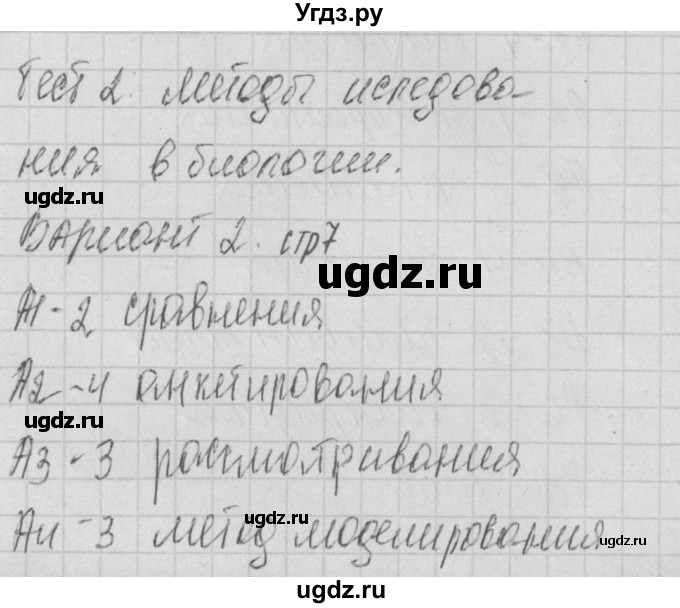 Угдз.ру
Тест 2. Методы иследова-
ния в биологии.
ugdz.ru
ugdz.ru
Вариант 2. стр7
ugdz.ru
А1-2 сравнения
А2-4 анкетирования
ugdz.ru
ugdz.ru
А3-3 рассмотривания
А4-3 метод моделирования
ugdz.ru
ugdz.ru
ugdz.ru